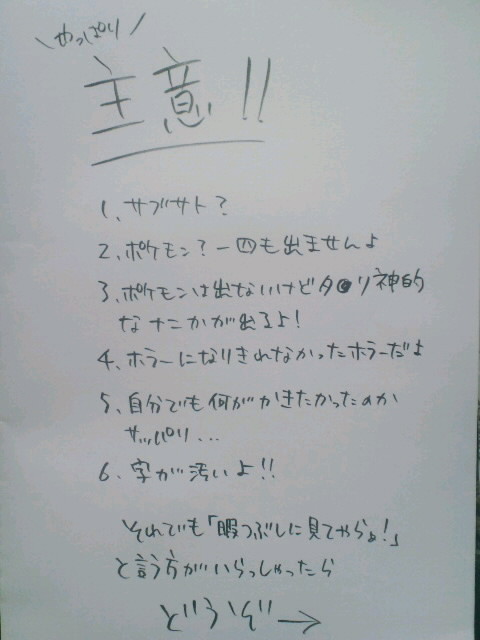 \やっぱり/
主意!!
1、サブサト?
2、ポケモン?一四も出ませんよ
3、ポケモンは出ないけどタ●リ神的
なナニかが出るよ!
4、ホラーになりきれなかったホラーだよ
5、自分でも何がかきたかったのか
サッパリ...
6、字が汚いよ!!
それでも「暇つぶしに見てやらぁ!」
と言う方がいらっしゃったら
どうぞ→